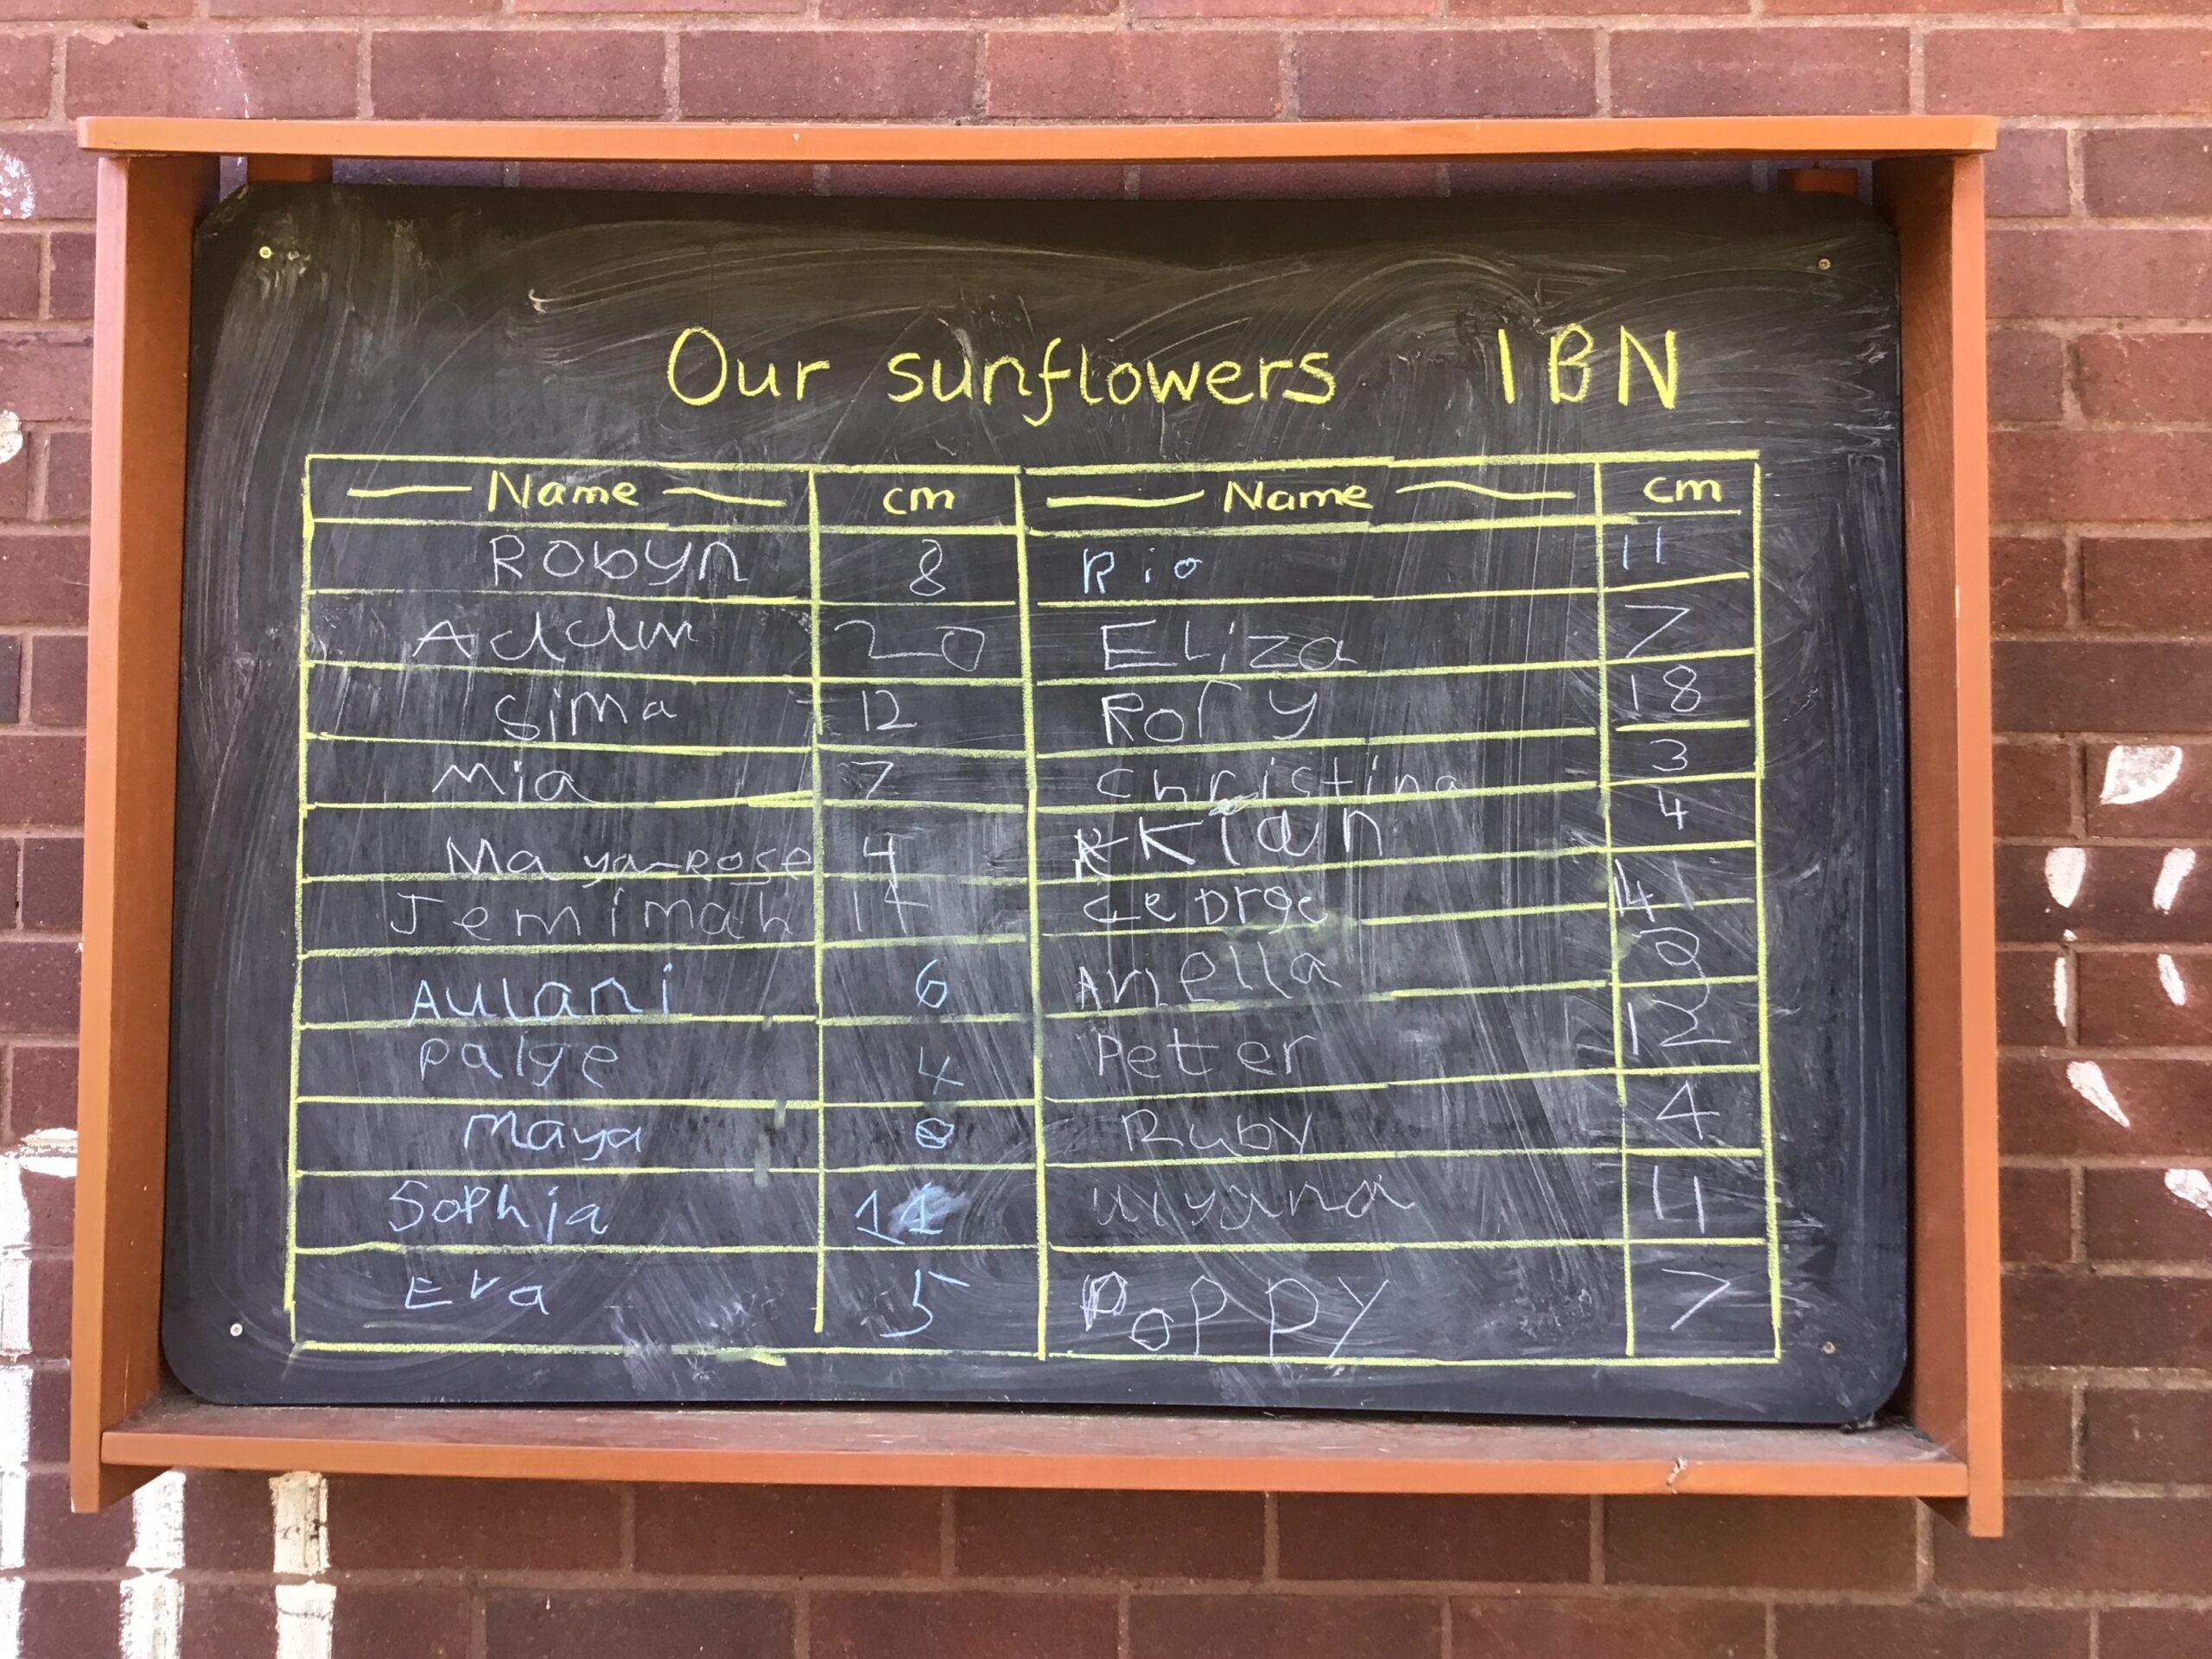 Our sunflowers 1BN
Name cm Name cm
Robyn 8 Rio 11
20 Eliza 7
Sima 12 Rory 18
Mia 7 Christina 3
Maya-Rose 4 Kian 4
Jemimah George
Aulani 6 Anella
Paige 4 Peter 12
Maya Ruby 4
Sophia ulyana 11
Eva 5 Poppy 7